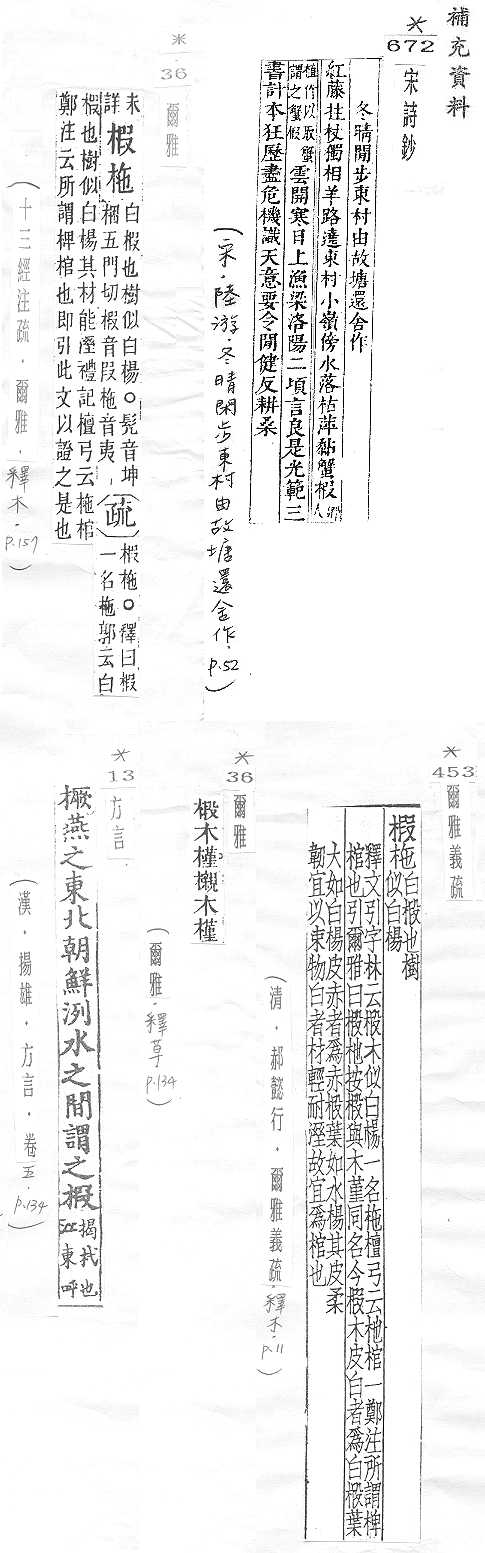 補充資料
*
672
宋詩鈔
冬晴閒步東村由故塘還舍作
紅藤拄杖獨相羊路遶東村小嶺傍水落枯萍黏蟹椵鄉人
植作以取蟹
謂之蟹椵
雲開寒日上漁梁洛陽二頃言良是光範三
書計本狂歷盡危機識天意要令閒健反耕桑
(宋.陸游.冬晴閒步東村由故塘還舍作.p.52)
*
36
爾雅
未
詳
椵柂
白椵也樹似白楊○髡音坤
棞五門切椵音段柂音夷
疏
椵柂○釋曰椵
一名柂郭云白
椵也樹似白楊其材能溼禮記檀弓云柂棺
鄭注云所謂椑棺也即引此文以證之是也
(十三經注疏.爾雅.釋木.p.157)
*
453
爾雅義疏
椵柂
白椵也樹
似白楊
釋文引字林云椵木似白楊一名柂檀弓云杝棺一鄭注所謂椑
棺也引爾雅曰椵杝按椵與木堇同名今椵木皮白者爲白椵葉
大如白楊皮赤者爲赤椵葉如水楊其皮柔
韌宜以束物白者材輕耐溼故宜爲棺也
(清.郝懿行.爾雅義疏.釋木.p.11)
*
36
爾雅
椴木槿櫬木槿
(爾雅.釋草p.134)
*
13
方言
橛燕之東北朝鮮洌水之間謂之椵
揭杙也
江東呼
(漢.揚雄.方言.卷五.p.134)